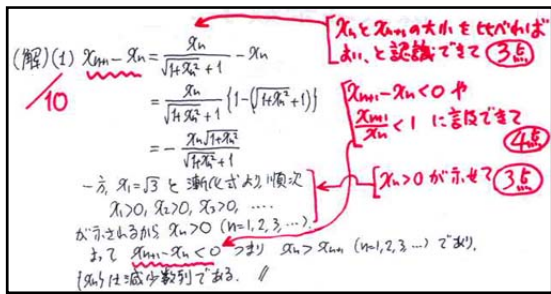 (解)(1) xₙ₊₁ - xₙ = xₙ/(√(1+xₙ²) + 1) - xₙ
/10
= xₙ/(√(1+xₙ²) + 1) {1 - (√(1+xₙ²) + 1)}
= - xₙ√(1+xₙ²)/(√(1+xₙ²) + 1)
一方, x₁=√3 と漸化式より, 順次
x₁>0, x₂>0, x₃>0, ....
が示されるから xₙ>0 (n=1,2,3,...).
よって xₙ₊₁-xₙ<0 つまり xₙ>xₙ₊₁ (n=1,2,3...) であり,
{xₙ}は減少数列である. //
xₙとxₙ₊₁の大小を比べれば
よい, と認識できて 3点
xₙ₊₁-xₙ<0 や
xₙ₊₁/xₙ<1 に言及できて
4点
xₙ>0 が示せて 3点